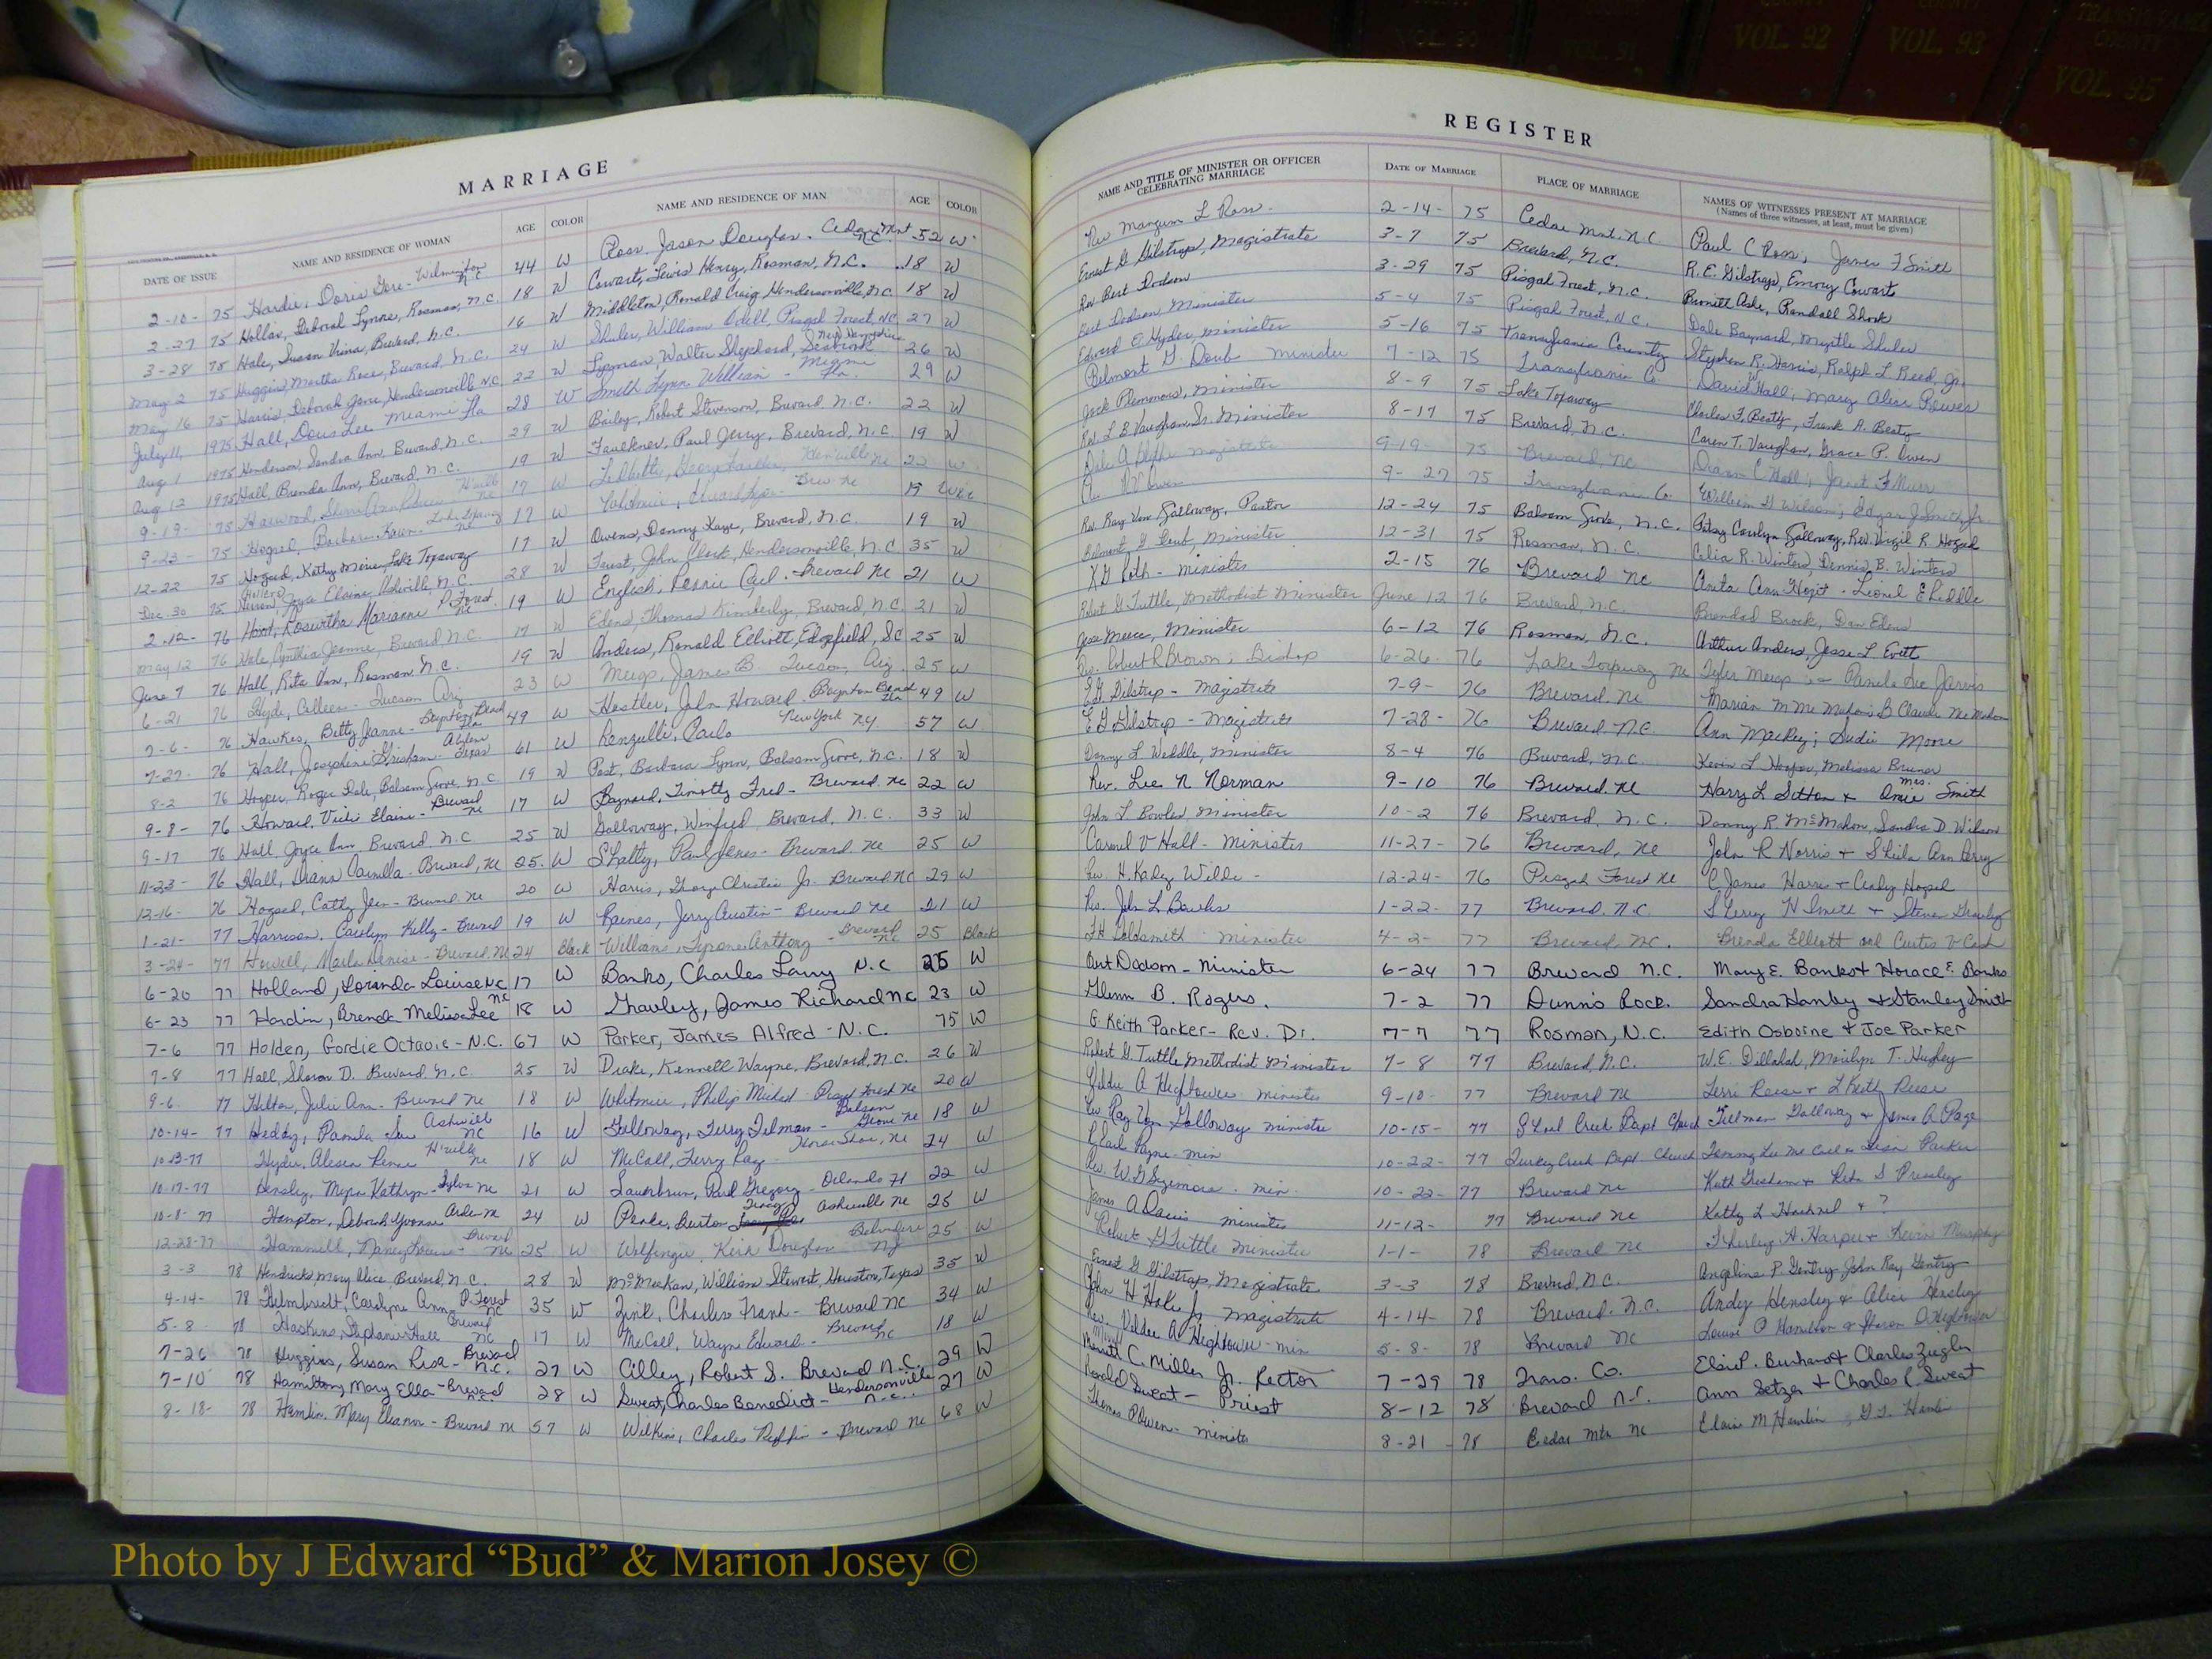 VOL. 92
VOL. 93
TRANSYLVANIA
COUNTY
VOL. 95
MARRIAGE
REGISTER
DATE OF ISSUE NAME AND RESIDENCE OF WOMAN AGE COLOR NAME AND RESIDENCE OF MAN AGE COLOR NAME AND TITLE OF MINISTER OR OFFICER CELEBRATING MARRIAGE DATE OF MARRIAGE PLACE OF MARRIAGE NAMES OF WITNESSES PRESENT AT MARRIAGE
(Names of three witnesses, at least, must be given)
2-10- 75 Hardie, Doris Gore - Wilmington N.C. 44 W Ross, Jason Douglas. Cedar Mnt N.C. 52 W Rev Mangum L Ross. 2-14- 75 Cedar Mnt. N.C. Paul C Ross, James F Smith
2-27 75 Hollar, Deborah Lynne, Rosman, N.C. 18 W Cowart, Lewis Henry, Rosman, N.C. 18 W Ernest G Gilstrap, Magistrate 3-7 75 Brevard, N.C. R.E. Gilstrap, Emory Cowart
3-28 75 Hale, Susan Brevard, N.C. 16 W Middleton, Ronald Craig, Hendersonville, N.C. 18 W Rev Bert Dodson 3-29 75 Pisgah Forest, N.C. Randall Shook
May 2 75 Huggins, Martha Rose, Brevard, N.C. 24 W Shuler, William Odell, Pisgah Forest, N.C. 27 W Bert Dodson, Minister 5-4 75 Pisgah Forest, N.C. Dale Baynard, Myrtle Shuler
May 16 75 Harris, Deborah Jane, Hendersonville N.C. 22 W Lyman, Walter Shephard, Seabrook New Hampshire 26 W Edward E. Hyder, Minister 5-16 75 Transylvania County Stephen R. Harris, Ralph L Reed, Jr.
July 11, 1975 Hall, Doris Lee Miami Fla 28 W Smith Lynn William - Miami Fla. 29 W Belmont G. Doub Minister 7-12 75 Transylvania Co. David W Hall; Mary Alice Reeves
Aug 1 1975 Henderson, Sandra Ann, Brevard, N.C. 29 W Bailey, Robert Stevenson, Brevard, N.C. 22 W Jack Plemmons, Minister 8-9 75 Lake Toxaway Charles F. Beaty, Frank A. Beaty
Aug 12 1975 Hall, Brenda Ann, Brevard, N.C. 19 W Faulkner, Paul Jerry, Brevard, N.C. 19 W Rev. L B Vaughan, Sr. Minister 8-17 75 Brevard, N.C. Caren T. Vaughan, Grace P. Owen
9-19- 75 17 W magistrate 9-19- 75 Brevard, NC
9-23- 75 Hogsed, Barbara Karen - Lake Toxaway NC 17 W Brev. NC 19 9-27 75 Transylvania Co.
12-22 75 Hogsed, Kathy Marie Lake Toxaway 17 W Owens, Danny Kaye, Brevard, N.C. 19 W Rev. Ray Von Galloway, Pastor 12-24 75 Balsam Grove, N.C. Patsy Carolyn Galloway, Rev. Virgil R. Hogsed
Dec. 30 75 Joyce Elaine, Asheville, N.C. 28 W Foust, John Clark, Hendersonville, N.C 35 W Belmont G Doub, Minister 12-31 75 Rosman, N.C. Celia R. Winters, Dennis B. Winters
2-12- 76 Hoxit, Roswitha Marianne P. Forest NC 19 W English, Rennie Carl - Brevard NC 21 W K G Roth - Minister 2-15 76 Brevard NC Anita Ann Hoxit - Lionel E Liddle
May 12 76 Hale, Cynthia Jeanne, Brevard N.C. 17 W Edens, Thomas Kimberly, Brevard, N.C. 21 W Robert G Tuttle, Methodist Minister June 12 76 Brevard, N.C. Brendad Brock, Dan Edens
June 7 76 Hall, Rita Ann, Rosman, N.C. 19 W Anders, Ronald Elliott, Edgefield, SC 25 W Jesse Meece, Minister 6-12 76 Rosman, N.C. Arthur Anders, Jesse L Evett
6-21 76 Hyde, Colleen - Tucson Ariz 23 W Meigs, James B. Tucson, Ariz. 25 W Rev. Robert R Brown, Bishop 6-26- 76 Lake Toxaway NC Tyler Meigs Pamela Lee Jarvis
7-6- 76 Hawkes, Betty Jeanne - Boynton Beach Fla 49 W Hostler, John Howard - Boynton Beach Fla 49 W E G Gilstrap - Magistrate 7-9- 76 Brevard, NC Marian M McMahon; B Claude McMahon
7-27- 76 Hall, Josephine Grisham - Abilene Texas 61 W Renzulli, Carlo New York NY 57 W E G Gilstrap - Magistrate 7-28- 76 Brevard N.C. Ann Mackey; Sudie Moore
8-2 76 Hooper, Roger Dale, Balsam Grove, N.C. 19 W Post, Barbara Lynn, Balsam Grove, N.C. 18 W Danny L Waddle, Minister 8-4 76 Brevard, N.C. Kevin L Hooper, Melissa Bruner
9-8- 76 Howard, Vicki Elaine - Brevard NC 17 W Baynard, Timothy Fred - Brevard NC 22 W Rev. Lee N Norman 9-10 76 Brevard, NC Harry L Sitton & Mrs. Smith
9-17 76 Hall Joyce Ann Brevard N.C. 25 W Galloway, Winfred Brevard, N.C. 33 W John L Bowles, Minister 10-2 76 Brevard, N.C. Danny R. McMahon, Sandra D. Wilson
11-23- 76 Hall, Diann Camilla - Brevard, NC 25 W Shatty, Paul James - Brevard NC 25 W Carmel V Hall - Minister 11-27- 76 Brevard, NC John R Norris & Sheila Ann Perry
12-16- 76 Hogsed, Cathy Jean - Brevard NC 20 W Harris, George Christie Jr. Brevard NC 29 W Rev H. Kady Wilde - 12-24- 76 Pisgah Forest NC C. James Harris & Cindy Hogsed
1-21- 77 Harrison, Carolyn Kelly - Brevard 19 W Raines, Jerry Austin - Brevard NC 21 W Rev. John L Bowles 1-22- 77 Brevard, N.C. L Terry N Smith & Steven
3-24- 77 Howell, Marla Denise - Brevard, NC 24 Black Williams, Tyrone Anthony - Brevard NC 25 Black F H Goldsmith Minister 4-2- 77 Brevard, NC. Brenda Elliott and Curtis V Cash
6-20 77 Holland, Loranda Louise N.C. 17 W Banks, Charles Larry N.C 25 W Burt Dodson - Minister 6-24 77 Brevard N.C. Mary E. Banks & Horace E. Banks
6-23 77 Hardin, Brenda Melissa Lee NC 18 W Gravley, James Richard NC 23 W Glenn B. Rogers. 7-2 77 Dunn's Rock. Sandra Hanby & Stanley Smith
7-6 77 Holden, Gordie Octavie - N.C. 67 W Parker, James Alfred - N.C. 75 W G. Keith Parker - Rev. Dr. 7-7 77 Rosman, N.C. Edith Osborne & Joe Parker
7-8 77 Hall, Sharon D. Brevard, N.C. 25 W Drake, Kennell Wayne, Brevard, N.C. 26 W Robert G. Tuttle Methodist Minister 7-8 77 Brevard, N.C. W.E. Dillahd, Marilyn T. Hughey
9-6 77 Hilton, Julie Ann - Brevard NC 18 W Whitmire, Philip Michael - Pisgah Forest NC 20 W Veldee A Hightower - minister 9-10- 77 Brevard NC Terri Reese & L Keith Reese
10-14- 77 Heddy, Pamela Sue Asheville NC 16 W Galloway, Terry Telman - Balsam Grove NC 18 W Rev Ray Von Galloway minister 10-15- 77 Shoal Creek Bapt Church Tillman Galloway & James A Page
10-13-77 Hyder, Alesea Rene H'ville NC 18 W McCall, Terry Ray - Horse Shoe, NC 24 W Earl Payne - min 10-22- 77 Turkey Creek Bapt. Church Tommy Lee McCall & Lisa Parker
10-17-77 Hensley, Myra Kathryn - Sylva NC 21 W Lauterbrun, Paul Gregory - Orlando Fl 22 W Rev. W G Sizemore - min. 10-22- 77 Brevard NC Keith Gresham & Reta S Pressley
10-8- 77 Hampton, Deborah Yvonne Arden NC 24 W Peake, Burton Tracy Asheville NC 25 W James A Davis minister 11-12- 77 Brevard NC Kathy L & ?
12-28-77 Hammill, Nancy Louise - Brevard NC 25 W Wolfinger, Keith Douglas - Belvidere NJ 25 W Robert G Tuttle Minister 1-1- 78 Brevard NC Shirley A. Harper & Kevin Murphy
3-3 78 Hendricks Mary Alice Brevard, N.C. 28 W McMeekan, William Stewart, Houston, Texas 35 W Ernest G Gilstrap, Magistrate 3-3 78 Brevard, N.C. Angeline P. Gentry - John Ray Gentry
4-14- 78 Helmbrecht, Carolyne Ann - P. Forest NC 35 W Zink, Charles Frank - Brevard NC 34 W John H Hole Jr magistrate 4-14- 78 Brevard, N.C. Andy Hensley & Alice Hensley
5-8 78 Haskins, Stephanie Hall Brevard NC 17 W McCall, Wayne Edward - Brevard NC 18 W Rev. Veldee A Hightower - min 5-8- 78 Brevard NC Louise P Hamilton & Sharon D Hightower
7-26 78 Huggins, Susan Risa - Brevard N.C. 27 W Cilley, Robert S. Brevard N.C. 29 W Merritt C. Miller Jr. Rector 7-29 78 Trans. Co. Elsie P. Burhans & Charles Ziegler
7-10 78 Hamilton, Mary Ella - Brevard N.C. 28 W Sweat, Charles Benedict - Hendersonville N.C. 27 W Ronald Sweat - Priest 8-12 78 Brevard N.C. Ann Setzer & Charles R. Sweat
8-18- 78 Hamlin, Mary Eleanor - Brevard NC 57 W Wilkins, Charles Ruffin - Brevard NC 68 W Thomas P Owen - minister 8-21 - 78 Cedar Mtn NC Elaine M Hamlin, G T. Hamlin
Photo by J Edward “Bud” & Marion Josey ©